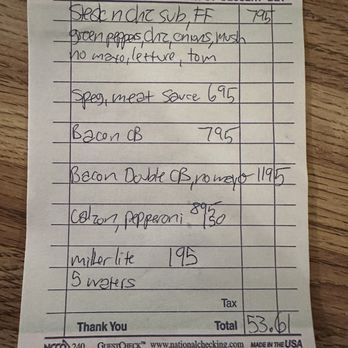 Steak n chz sub, FF 795
green peppers, chz, onions, mush
no mayo, letture, tom
Spag, meat sauce 695
Bacon CB 795
Bacon Double CB, no mayo 1195
calzon, pepperoni 895
150
miller lite 195
5 waters
Tax
Thank You Total 53.61
240 GUESTCHECK™ www.nationalchecking.com MADE IN THE USA